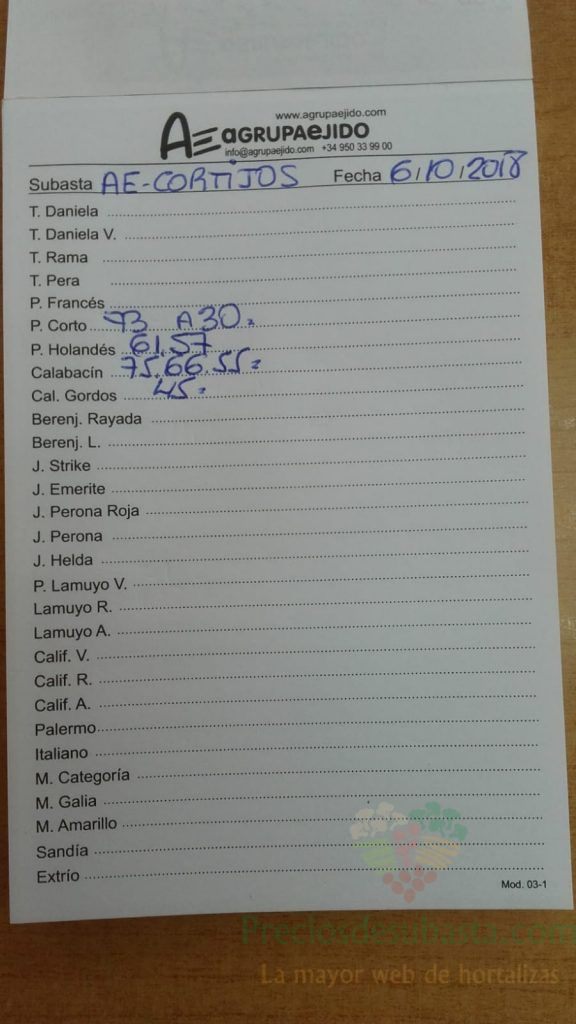 www.agrupaejido.com
AE AGRUPAEJIDO
info@agrupaejido.com +34 950 33 99 00
Subasta AE-CORTIJOS Fecha 6/10/2018
T. Daniela
T. Daniela V.
T. Rama
T. Pera
P. Francés
P. Corto 93 A 30
P. Holandés 61.57
Calabacín 75.66.55
Cal. Gordos 45
Berenj. Rayada
Berenj. L.
J. Strike
J. Emerite
J. Perona Roja
J. Perona
J. Helda
P. Lamuyo V.
Lamuyo R.
Lamuyo A.
Calif. V.
Calif. R.
Calif. A.
Palermo
Italiano
M. Categoría
M. Galia
M. Amarillo
Sandía
Extrío
Mod. 03-1
Preciosdesubasta.com
La mayor web de hortalizas